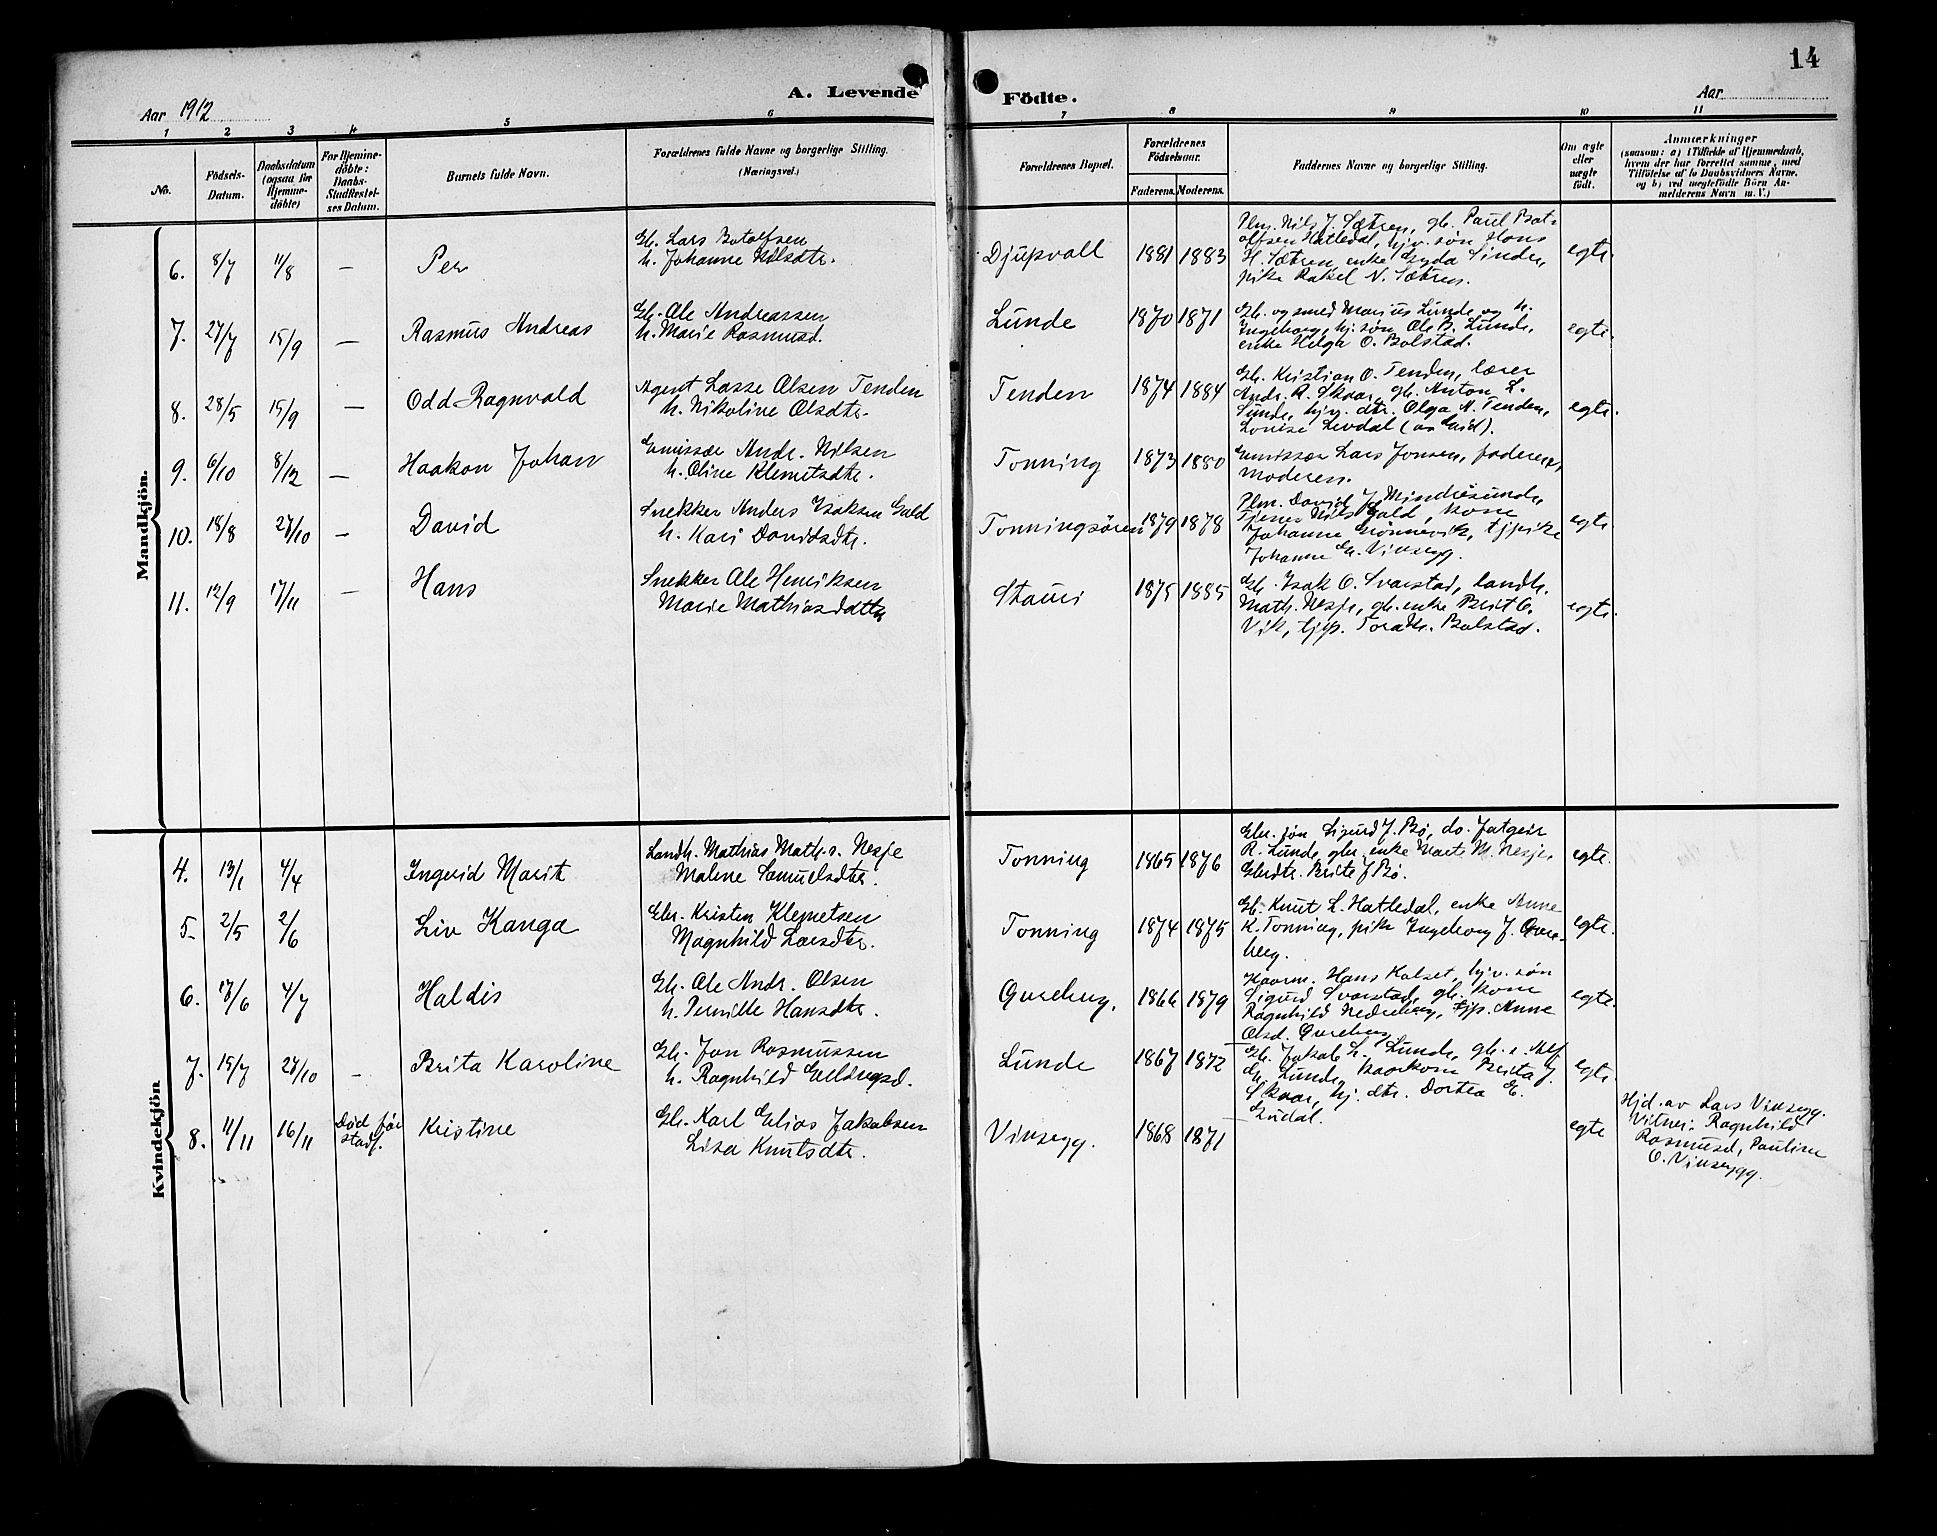 14
Aar 1912
A. Levende
Födte.
Aar
1 2 3 4 5 6 7 8 9 10 11
No.
Födsels-
Datum.
Daabsdatum
(ogsaa for
Hjemme-
döbte)
For Hjemme-
döbte:
Daabs-
Stadfæstel-
ses Datum.
Barnets fulde Navn.
Forældrenes fulde Navne og borgerlige Stilling.
(Næringsvei.)
Forældrenes Bopæl.
Forældrenes
Födselsaar.
Faderens. Moderens.
Faddernes Navne og borgerlige Stilling.
Om ægte
eller
uægte
födt.
Anmærkninger
(saasom: a) i Tilfælde af Hjemmedaab,
hvem der har forrettet samme, med
Tilföielse af to Daabsvidners Navne,
og b) ved uægtefödte Börn An-
melderens Navn m. V.)
Mandkjön.
6. 8/7 11/8 — Per
Gb. Lars Botolfsen
h. Johanne Nilsdtr.
Djupvall 1881 1883
Plm. Nils J. Sætren, gb. Paul Bot-
olfsen Hatledal, hjv. søn Hans
H. Sætren, enke Gyda Sinden,
pike Rakel N. Sætren.
egte.
7. 27/7 15/9 — Rasmus Andreas
Gb. Ole Andreassen
h. Marie Rasmusd.
Lunde 1870 1871
Gb. og smed Marius Lunde og h.
Ingeborg, hj. søn Ole B. Lunde,
enke Helga O. Bolstad.
egte.
8. 28/5 15/9 — Odd Ragnvald
Agent Lasse Olsen Tenden
h. Nikoline Olsdtr.
Tenden 1874 1884
Gb. Kristian O. Tenden, lærer
Andr. R. Skaar, gb. Anton L.
Lunde, hjv. dtr. Olga N. Tenden,
Louise Levdal
egte.
9. 6/10 8/12 — Haakon Johan
Emissær Andr. Nilsen
h. Oline Klemetsdtr.
Tonning 1873 1880
Emissær Lars Jonsen, faderen,
moderen.
10. 18/8 27/10 — David
Snekker Anders Isaksen Guld
h. Kari Davidsdtr.
Tonningsøren 1879 1878
Plm. David J. Mindresunde
Tjener Nils Gald, kone
Johanne Grønnevik, tjpike
Johanne Gr. Vinsegg.
egte
11. 12/9 17/11 — Hans
Snekker Ole Henriksen
Marie Mathiasdatter
Stauri 1875 1885
Gb. Isak O. Svarstad, landh.
Math. Nesje, gb. enke Brit O.
Vik, tjp. Tora Kr. Bolstad.
egte.
Kvindekjön
4. 13/1 4/4 Ingerid Marit
Landh. Mathias Math.s. Nesje
Malene Samuelsdtr.
Tonning 1865 1876
Gbr. søn Sigurd J. Bø, do. Jatgeir
R. Lunde, gbr. enke Marte M. Nesje,
Gbrdtr. Brite J Bø.
egte.
5. 2/5 2/6 Liv Kanga
Gbr. Kristen Klemetsen
Magnhild Larsdtr.
Tonning 1874 1875
Gb. Knut L. Hatledal, enke Anne
K. Tonning, pike Ingeborg J. Øvre-
berg.
egte.
6. 17/6 4/7 Haldis
Gb. Ole Andr. Olsen
h. Pernille Hansdtr.
Øvreberg, 1866 1879
Kaarm. Hans Kolset, hjv. søn
Sigurd Svarstad, gb. kone
Ragnhild Nedreberg, tjp. Anne
Olsd. Øvreberg
egte.
7. 15/7 27/10 — Brita Karoline
Gb. Jon Rasmussen
h. Ragnhild Eldregsd.
Lunde 1867 1872
Gb. Jakob L. Lunde, gb. s. Alf
Lunde, kaarkone Brita J.
Skaar, hj. dtr. Dortea E.
Eudal.
egte.
8. 11/11 16/11 Død før
stadf. Kristine
Gb. Karl Elias Jakobsen
Lisa Knutsdtr.
Vinsegg. 1868 1871
egte
Hjd. av Lars Vinsegg.
Vitner: Ragnhild
Rasmusd, Pauline
O. Vinsegg.